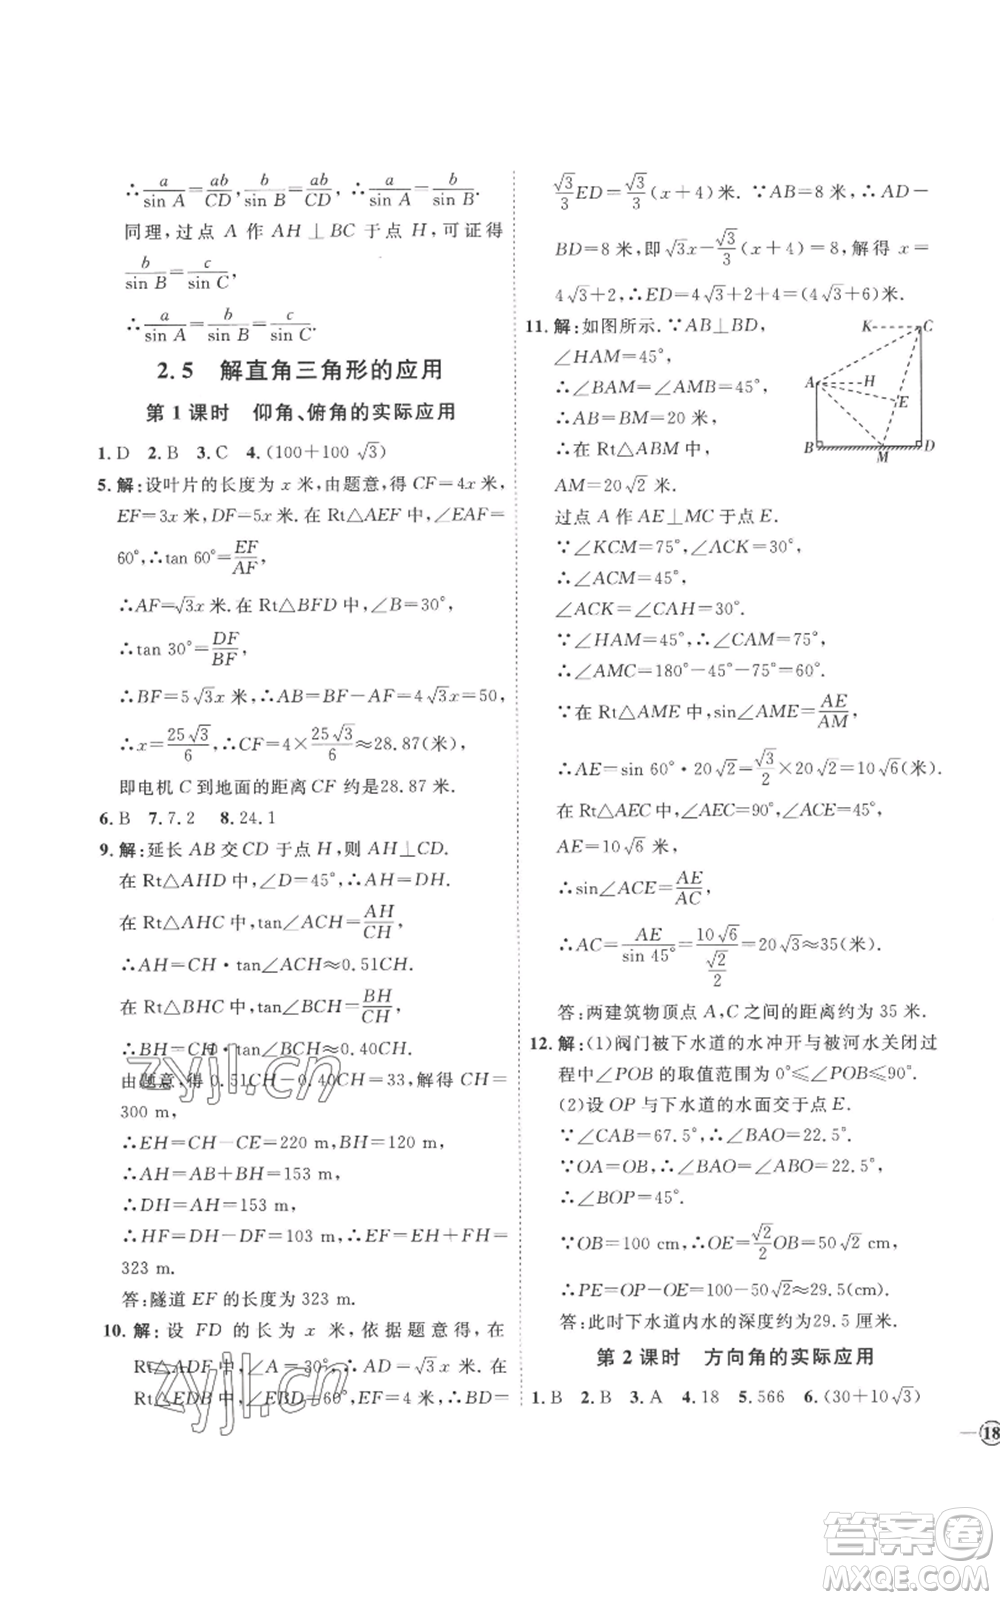 ∴a/sin A=ab/CD,b/sin B=ab/CD,∴a/sin A=b/sin B.
同理,过点 A 作 AH⊥BC 于点 H,可证得
b/sin B=c/sin C,
∴a/sin A=b/sin B=c/sin C.
2.5 解直角三角形的应用
第 1 课时 仰角、俯角的实际应用
1.D 2.B 3.C 4.(100+100√3)
5.解:设叶片的长度为 x 米,由题意,得 CF=4x 米,
EF=3x 米,DF=5x 米.在 Rt△AEF 中,∠EAF=
60°,∴tan 60°=EF/AF,
∴AF=√3x 米.在 Rt△BFD 中,∠B=30°,
∴tan 30°=DF/BF,
∴BF=5√3x 米,∴AB=BF-AF=4√3x=50,
∴x=25√3/6,∴CF=4×25√3/6≈28.87(米),
即电机 C 到地面的距离 CF 约是28.87 米.
6.B 7.7.2 8.24.1
9.解:延长 AB 交 CD 于点 H,则 AH⊥CD.
在 Rt△AHD 中,∠D=45°,∴AH=DH.
在 Rt△AHC 中,tan∠ACH=AH/CH,
∴AH=CH·tan∠ACH≈0.51CH.
在 Rt△BHC 中,tan∠BCH=BH/CH,
∴BH=CH·tan∠BCH≈0.40CH.
由题意,得 0.51CH-0.40CH=33,解得 CH=
300 m,
∴EH=CH-CE=220 m,BH=120 m,
∴AH=AB+BH=153 m,
∴DH=AH=153 m,
∴HF=DH-DF=103 m,∴EF=EH+FH=
323 m.
答:隧道 EF 的长度为 323 m.
10.解:设 FD 的长为 x 米,依据题意得,在
Rt△ADF 中,∠A=30°,∴AD=√3x 米.在
Rt△EDB 中,∠EBD=60°,EF=4 米,∴BD=
√3/3ED=√3/3(x+4)米.∵AB=8 米,∴AD-
BD=8 米,即√3x-√3/3(x+4)=8,解得 x=
4√3+2,∴ED=4√3+2+4=(4√3+6)米.
11.解:如图所示.∵AB⊥BD,
∠HAM=45°,
∴∠BAM=45°,
∴AB=BM=20 米,
∴在 Rt△ABM 中,
AM=20√2 米.
K C
A H
E
B M D
过点 A 作 AE⊥MC 于点 E.
∵∠KCM=75°,∠ACK=30°,
∴∠ACM=45°,
∠ACK=∠CAH=30°.
∵∠HAM=45°,∴∠CAM=75°,
∴∠AMC=180°-45°-75°=60°.
∵在 Rt△AME 中,sin∠AME=AE/AM,
∴AE=sin 60°·20√2=√3/2×20√2=10√6(米).
在 Rt△AEC 中,∠AEC=90°,∠ACE=45°,
AE=10√6 米,
∴sin∠ACE=AE/AC,
∴AC=AE/sin 45°=10√6/(√2/2)=20√3≈35(米).
答:两建筑物顶点 A,C 之间的距离约为 35 米.
12.解:(1)阀门被下水道的水冲开与被河水关闭过
程中∠POB 的取值范围为 0°≤∠POB≤90°.
(2)设 OP 与下水道的水面交于点 E.
∵∠CAB=67.5°,∴∠BAO=22.5°.
∵OA=OB,∴∠BAO=∠ABO=22.5°,
∴∠BOP=45°.
∵OB=100 cm,∴OE=√2/2OB=50√2 cm,
∴PE=OP-OE=100-50√2≈29.5(cm).
答:此时下水道内水的深度约为29.5 厘米.
第 2 课时 方向角的实际应用
1.B 2.B 3.A 4.18 5.566 6.(30+10√3)
18
zyjl.cn
zyjl.cn
答案卷
MXQE.COM